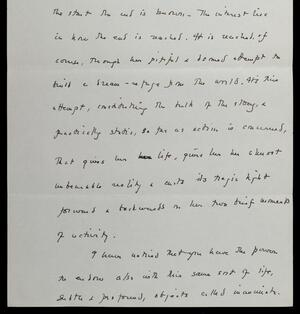 the start the end is known – The interest lies
in how the end is reached. It is reached, of
course, through her pitiful & doomed attempt to
build a dream-refuge from the world. It's this
attempt, constituting the bulk of the story, &
practically static, so far as action is concerned,
That gives her life, gives her her almost
unbearable reality & casts its tragic light
forward & backwards on her two brief moments
of activity.
I have noticed that you have the power
to endow also with this same sort of life,
subtle & profound, objects called inanimate.